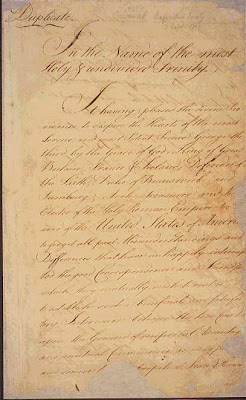 Duplicate.
In the Name of the most
Holy & undivided Trinity.
It having pleased the divine Pro
vidence to dispose the Hearts of the most
Serene and most Potent Prince George the
third by the Grace of God, King of Great
Britain, France & Ireland, Defender of
the Faith, Duke of Brunswick and
Luneburg, Arch Treasurer and
Elector of the Holy Roman Empire &c
and of the United States of America
to forget all past Misunderstandings and
Differences that have unhappily interrup
ted the good Correspondence and Friendship
which they mutually wish to
and to establish such a beneficial and satisfac
tory Intercourse between the two Countries
upon the Ground of reciprocal Advantages
and mutual Convenience as may
and secure to both perpetual Peace &